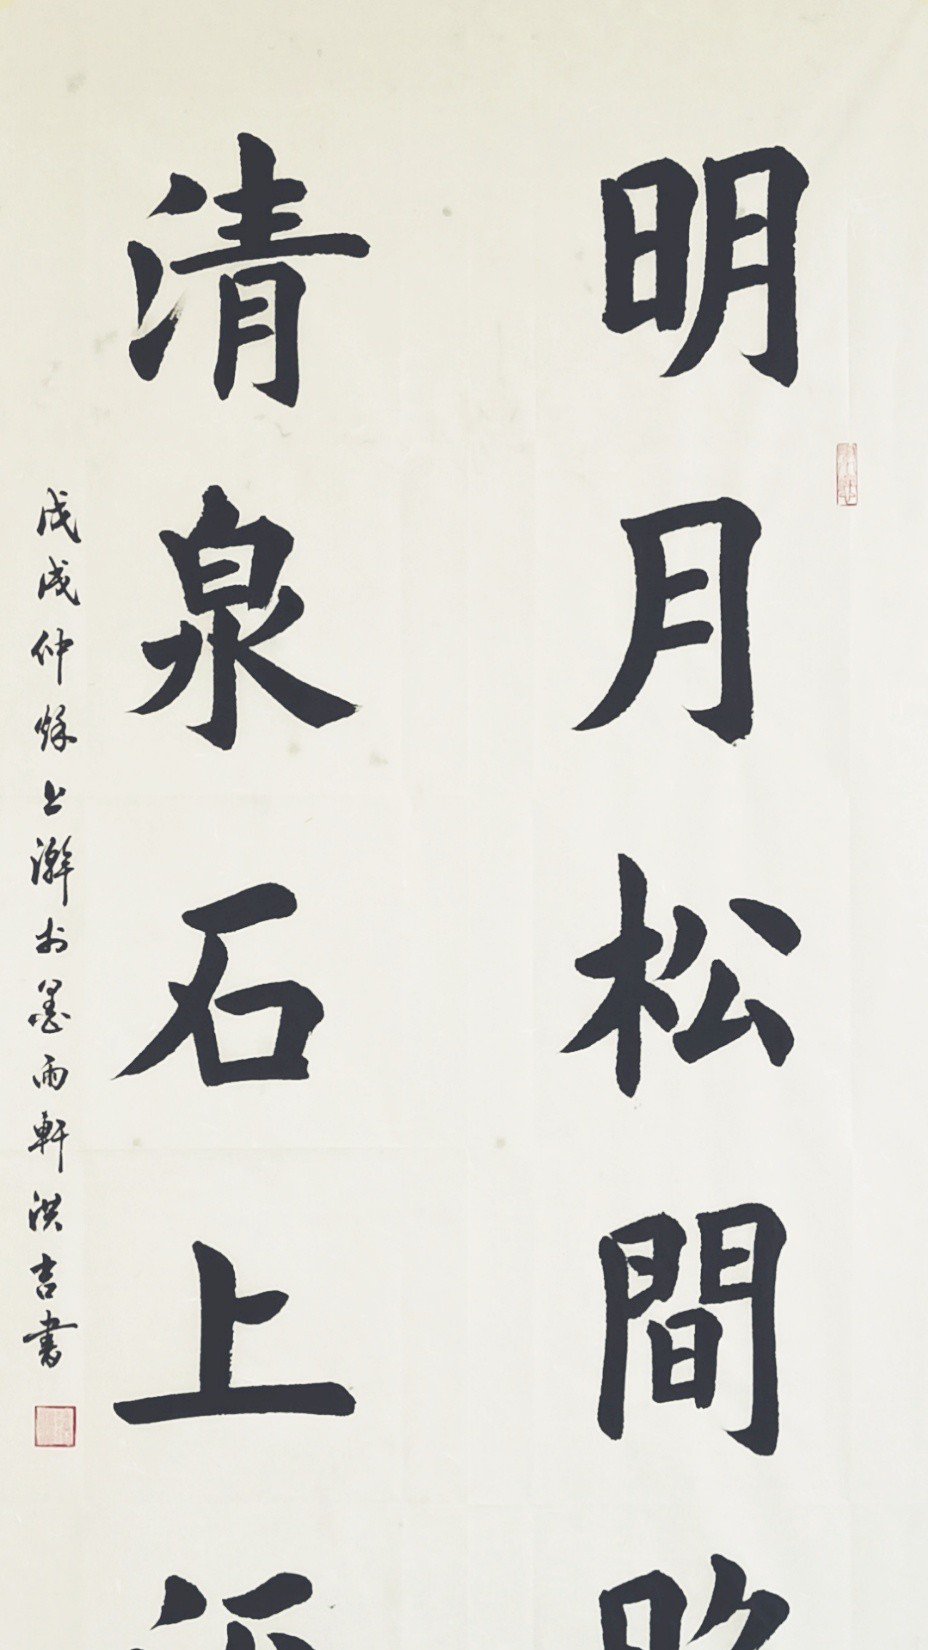 明月松間
清泉石上
戊戌仲秋上澣於墨雨軒洪吉書